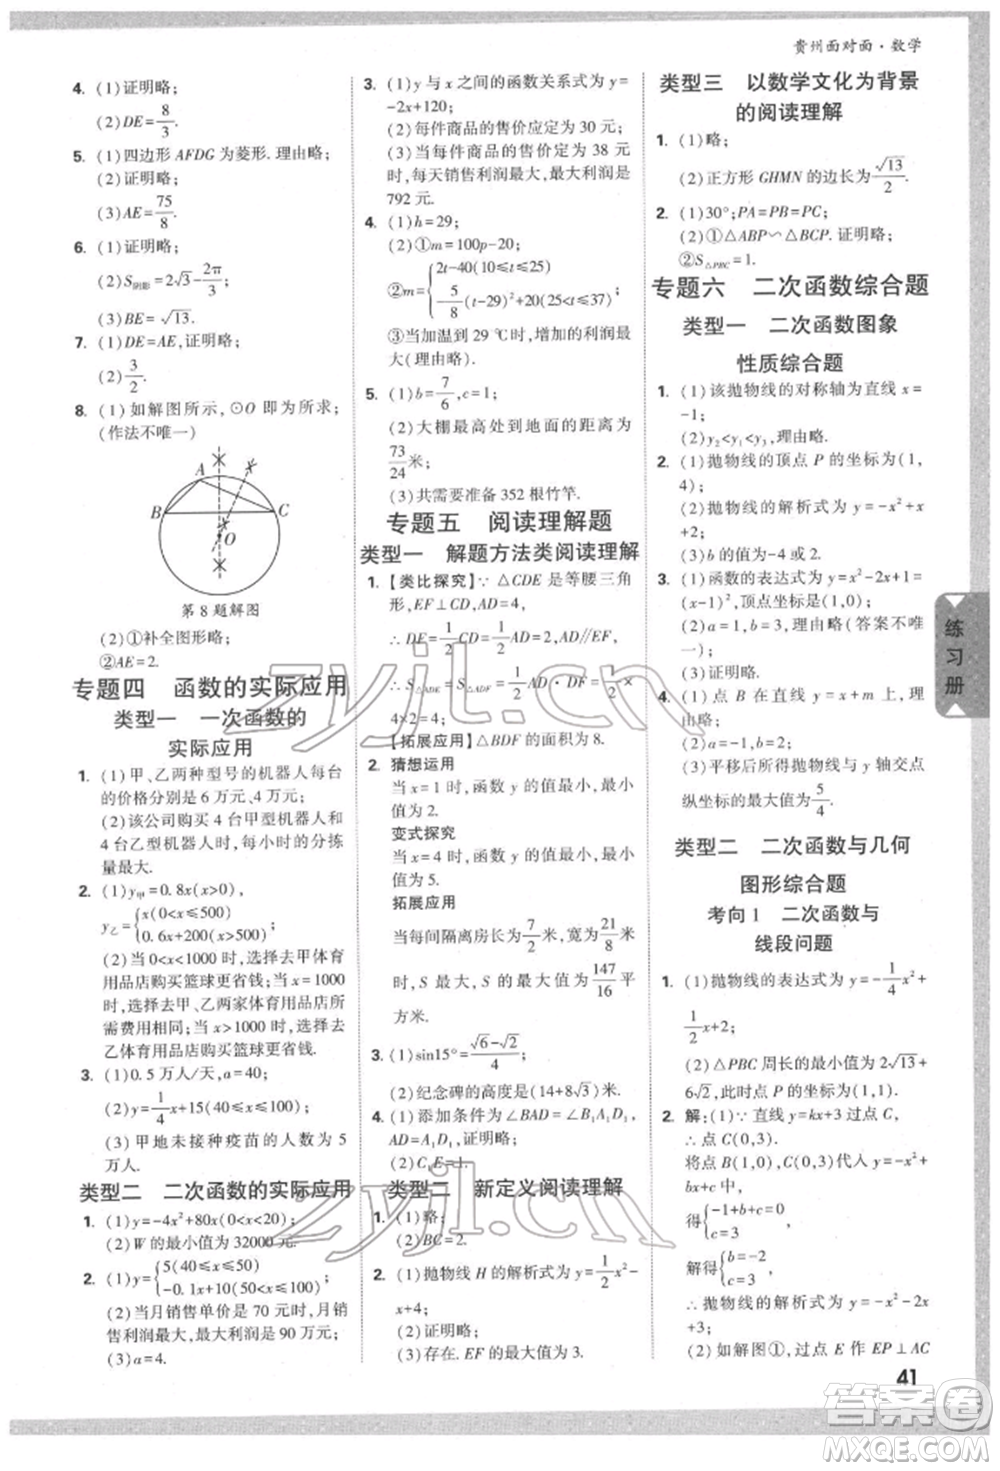 贵州面对面·数学
4. (1)证明略;
(2)DE=8/3.
5. (1)四边形 AFDG 为菱形.理由略;
(2)证明略;
(3)AE=75/8.
6. (1)证明略;
(2)S阴影=2√3-2π/3;
(3)BE=√13.
7. (1)DE=AE,证明略;
(2)3/2.
8. (1)如解图所示,⊙O 即为所求;
(作法不唯一)
A
B
C
O
第 8 题解图
(2)①补全图形略;
②AE=2.
专题四 函数的实际应用
类型一 一次函数的
实际应用
1. (1)甲、乙两种型号的机器人每台
的价格分别是 6 万元、4 万元;
(2)该公司购买 4 台甲型机器人和
4 台乙型机器人时,每小时的分拣
量最大.
2. (1)y甲=0.8x(x>0)
y乙={x(0<x≤500)
0.6x+200(x>500);
(2)当 0<x<1000 时,选择去甲体育
用品店购买篮球更省钱;当 x=1000
时,选择去甲、乙两家体育用品店所
需费用相同;当 x>1000 时,选择去
乙体育用品店购买篮球更省钱.
3. (1)0.5 万人/天,a=40;
(2)y=1/4x+15(40≤x≤100);
(3)甲地未接种疫苗的人数为 5
万人.
类型二 二次函数的实际应用
1. (1)y=-4x²+80x(0<x<20);
(2)W 的最小值为 32000 元.
2. (1)y={5(40≤x≤50)
-0.1x+10(50<x≤100);
(2)当月销售单价是 70 元时,月销
售利润最大,最大利润是 90 万元;
(3)a=4.
3. (1)y 与 x 之间的函数关系式为 y=
-2x+120;
(2)每件商品的售价应定为 30 元;
(3)当每件商品的售价为 38 元
时,每天销售利润最大,最大利润为
792 元.
4. (1)h=29;
(2)①m=100p-20;
②m={2t-40(10≤t≤25)
5/8(t-29)²+20(25<t≤37);
③当加温到 29 ℃时,增加的利润最
大(理由略).
5. (1)b=7/6,c=1;
(2)大棚最高处到地面的距离为
73/24米;
(3)共需要准备 352 根竹竿.
专题五 阅读理解题
类型一 解题方法类阅读理解
1. 【类比探究】∵△CDE 是等腰三角
形,EF⊥CD,AD=4,
∴DE=1/2CD=1/2AD=2,AD∥EF,
∴S△ADE=S△ADF=1/2AD·DF=1/2×
4×2=4;
【拓展应用】△BDF 的面积为 8.
2. 猜想运用
当 x=1 时,函数 y 的值最小,最小
值为 2.
变式探究
当 x=4 时,函数 y 的值最小,最小
值为 5.
拓展应用
当每间隔离房长为7/2米,宽为21/8米
时,S 最大,S 的最大值为147/16平
方米.
3. (1)sin15°=(√6-√2)/4;
(2)纪念碑的高度是(14+8√3)米.
4. (1)添加条件为∠BAD=∠B₁A₁D₁,
AD=A₁D₁,证明略;
(2)C₁E=1.
类型二 新定义阅读理解
1. (1)略;
(2)BC=2.
2. (1)抛物线 H 的解析式为 y=1/2x²-
x+4;
(2)证明略;
(3)存在.EF 的最大值为 3.
类型三 以数学文化为背景
的阅读理解
1. (1)略;
(2)正方形 GHMN 的边长为√13/2.
2. (1)30°;PA=PB=PC;
(2)①△ABP∽△BCP.证明略;
②S△PBC=1.
专题六 二次函数综合题
类型一 二次函数图象
性质综合题
1. (1)该抛物线的对称轴为直线 x=
-1;
(2)y₂<y₁<y₃,理由略.
2. (1)抛物线的顶点 P 的坐标为(1,
4);
(2)抛物线的解析式为 y=-x²+x+
2;
(3)b 的值为-2 或 5.
3. (1)函数的表达式为 y=x²-2x+1=
(x-1)²,顶点坐标是(1,0);
(2)a=1,b=2,理由略(答案不唯
一);
(3)证明略.
4. (1)点 B 在直线 y=x+m 上,理
由略;
(2)a=-1,b=2;
(3)平移后所得抛物线与 y 轴交点
纵坐标的最大值为5/4.
类型二 二次函数与几何
图形综合题
考向 1 二次函数与
线段问题
1. (1)抛物线的表达式为 y=-1/4x²+
1/2x+2;
(2)△PBC 周长的最小值为 2√13+
6√2,此时点 P 的坐标为(1,1).
2. 解:(1)∵直线 y=kx+3 过点 C,
∴点 C(0,3).
将点 B(-1,0),C(0,3)代入 y=-x²
+bx+c 中,
得{-1-b+c=0
c=3,
解得{b=-2
c=3,
∴抛物线的解析式为 y=-x²-2x+
3;
(2)如解图①,过点 E 作 EP⊥AC
练习册
41
zyjl.cn
zyjl.cn
答案圈
MXQE.COM